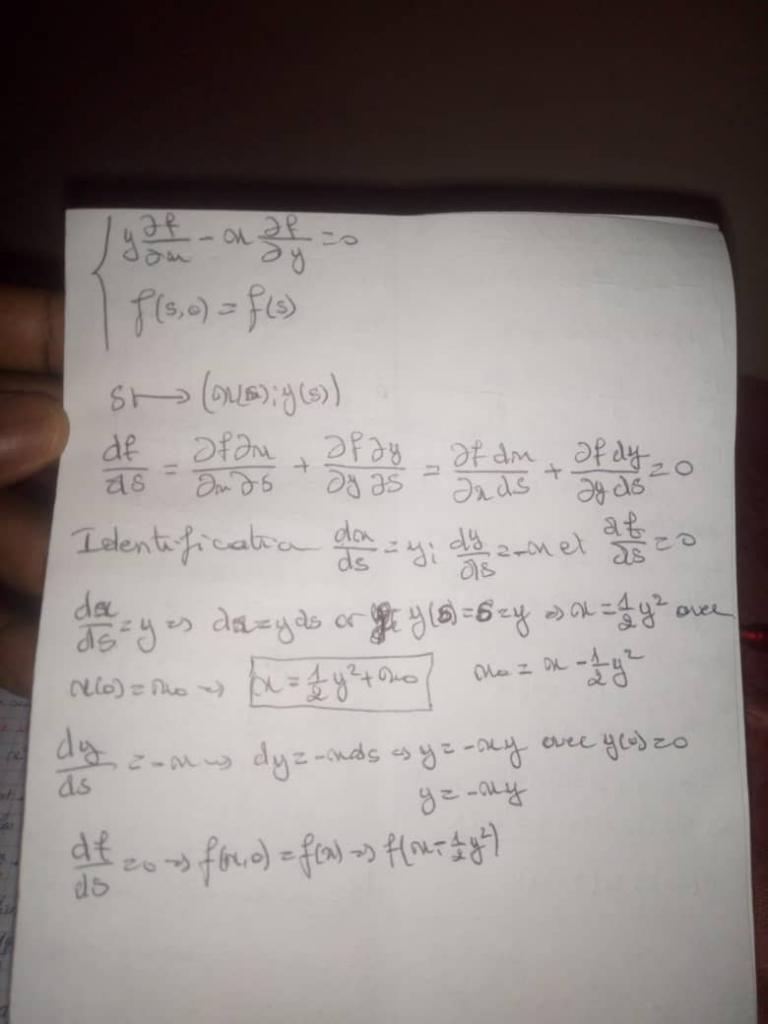 y ∂f/∂x - x ∂f/∂y = 0
f(s,0) = f(s)
s ⟼ (x(s); y(s))
df/ds = ∂f∂x/∂x∂s + ∂f∂y/∂y∂s = ∂f dx/∂x ds + ∂f dy/∂y ds = 0
Identification dx/ds = y; dy/ds = -x et df/ds = 0
dx/ds = y ⇒ dx = y ds or y(s) = s = y ⇒ x = 1/2 y² avec
x(0) = x₀ ⇒ x = 1/2 y² + x₀ x₀ = x - 1/2 y²
dy/ds = -x ⇒ dy = -x ds ⇒ y = -xy avec y(0) = 0
y = -xy
df/ds = 0 ⇒ f(x,0) = f(x) ⇒ f(x - 1/2 y²)